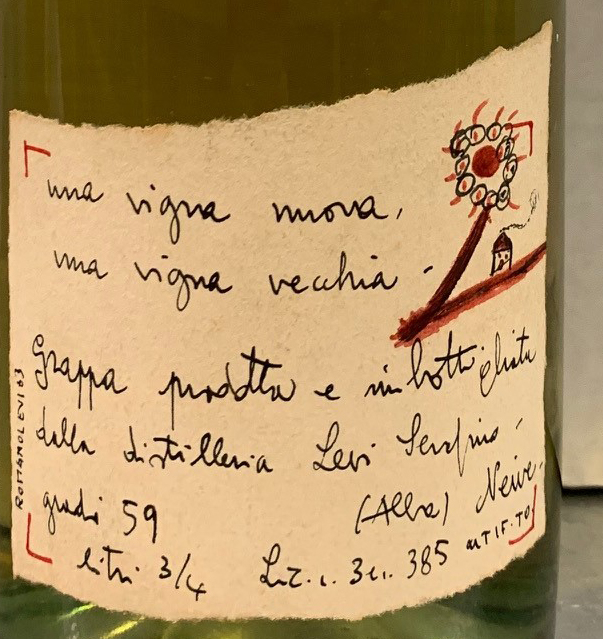 una vigna nuova,
una vigna vecchia -
Grappa prodotta e imbottigliata
dalla distilleria Levi Serafino -
(Alba) Neive -
gradi 59
litri 3/4
385
UTIF. TO
ROMANO LEVI 83